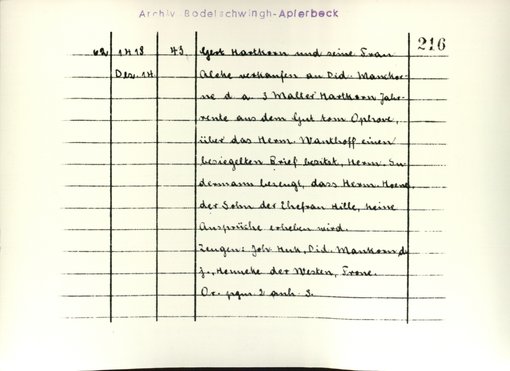 Archiv Bodelschwingh-Apierbeck
216
62 1418 43. Gert Hartkorn und seine Frau
Dez. 14 Aleke verkaufen an Did. Manckor-
ne d. a. 3 Malter Hartkorn Jahr-
rente aus dem Gut tom Ophove,
über das Herm. Wanthoff einen
besiegelten Brief besitzt, Herm. Su-
dermann bezeugt, dass Herm. Hoeve
der Sohn der Ehefrau Hille, keine
Ansprüche erheben wird.
Zeugen: Joh. Huk, Did. Mankorn, d.
j., Henneke der Westen, Frone.
Or. prgm. 2 anh. S.